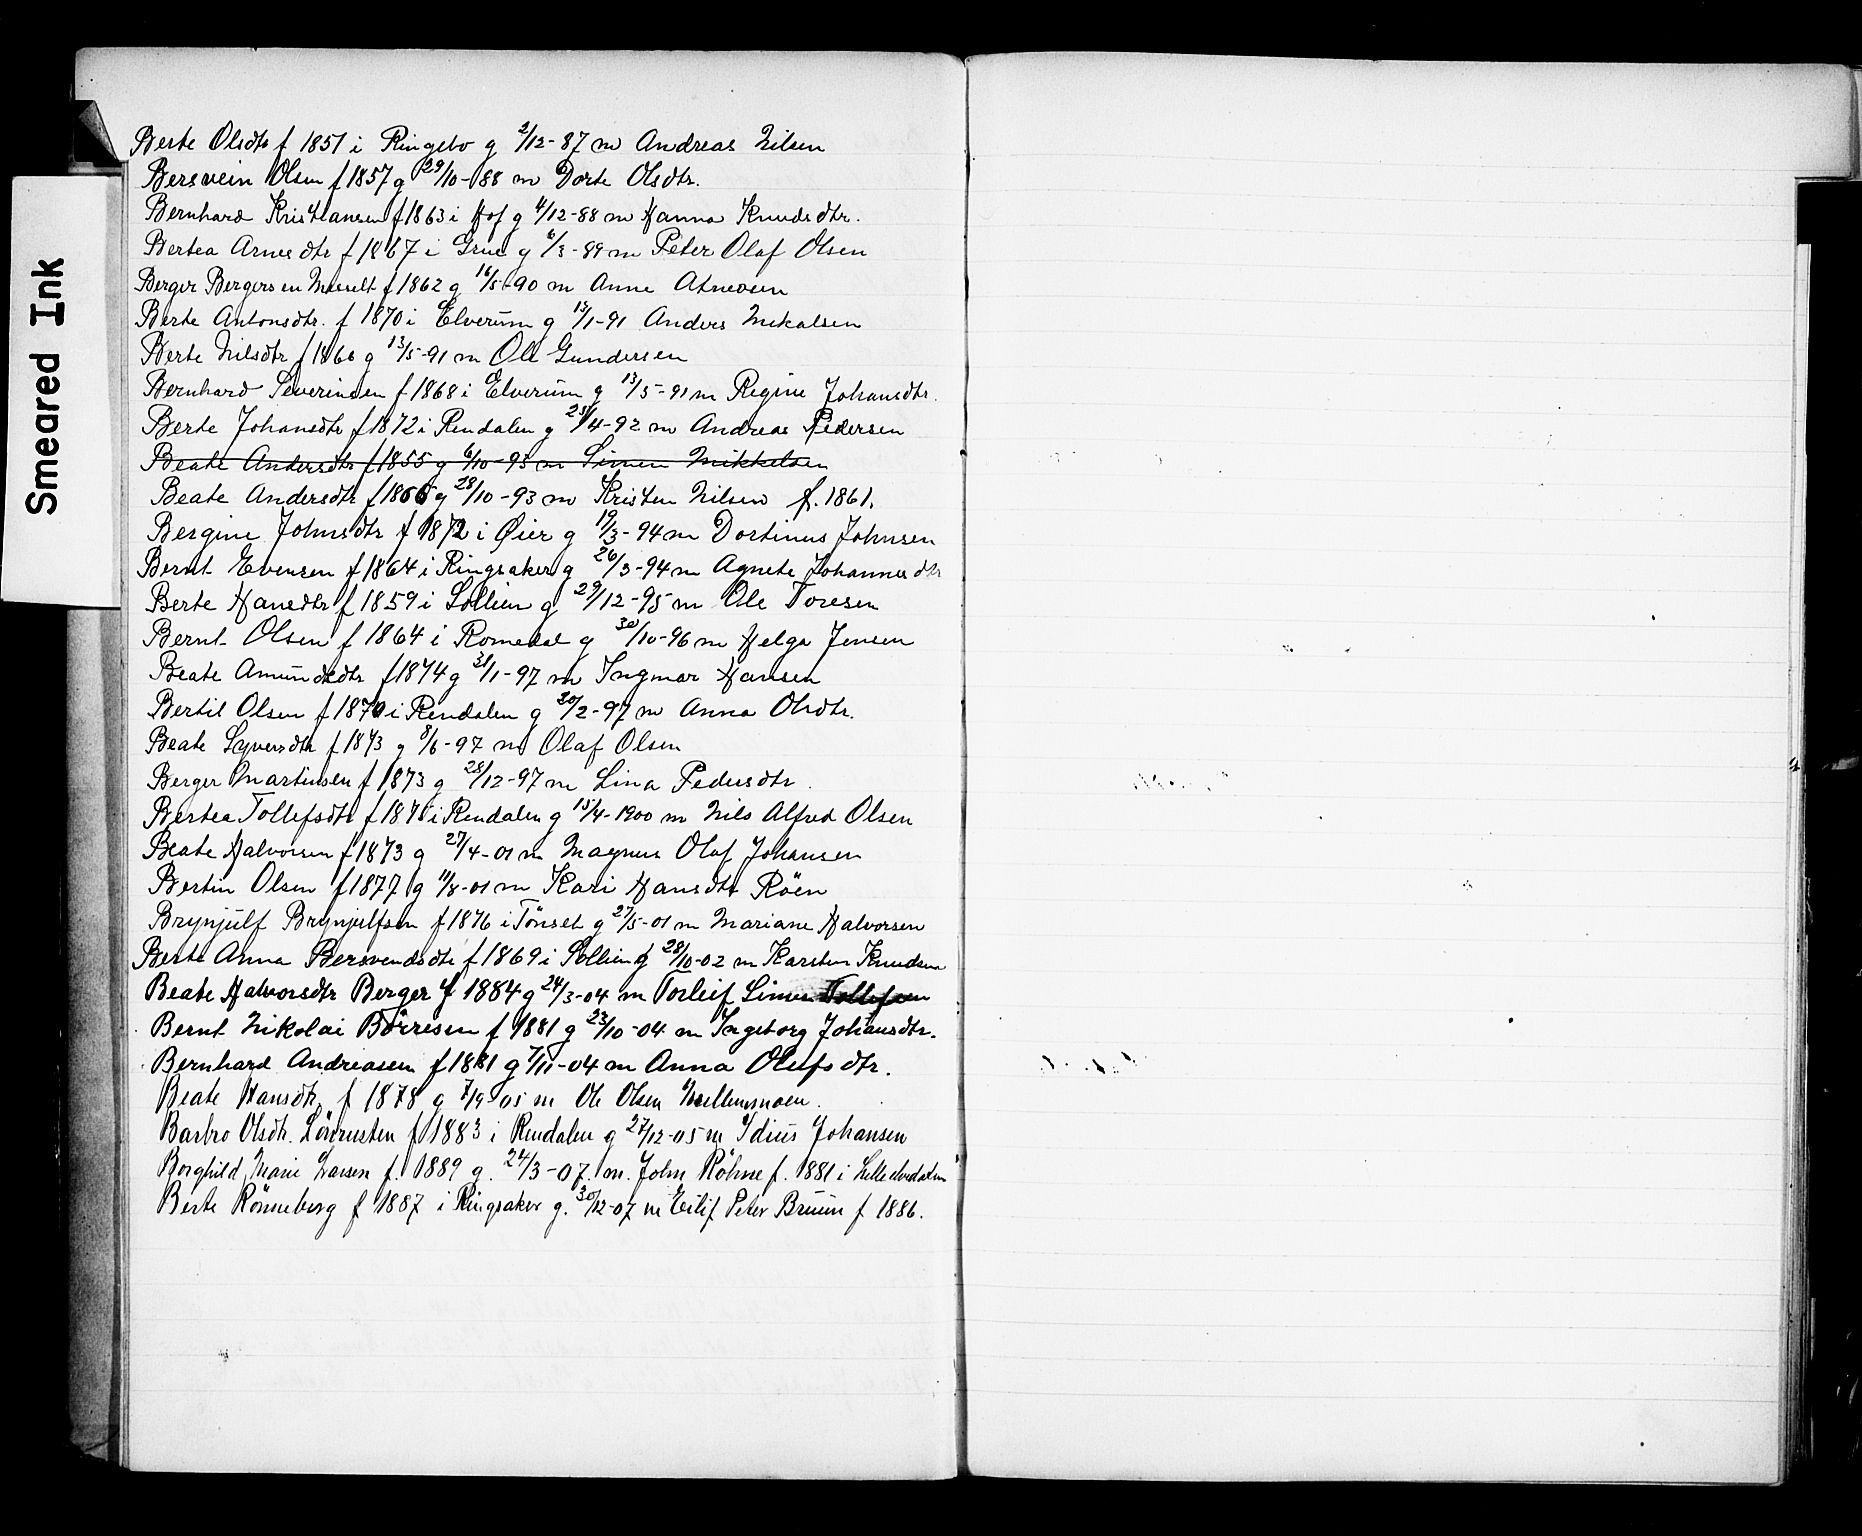 Smeared Ink
Berte Olsdtr f 1851 i Ringebo g 2/12-87 m Andreas Nilsen
Bersvein Olsen f 1857 g 29/10-88 m Dorte Olsdtr.
Bernhard Kristiansen f 1863 i Hof g 4/12-88 m Hanna Knudsdtr.
Bertea Arnesdtr f 1867 i Grue g 6/3-89 m Peter Olaf Olsen
Berger Bergersen f 1862 g 16/5-90 m Anne
Berte Antonsdtr. f 1870 i Elverum g 13/1-91 Anders Mikalsen
Berte Nilsdtr f 1860 g 13/5-91 m Ole Gundersen
Bernhard Severinsen f 1868 i Elverum g 13/5-91 m Regine Johansdtr.
Berte Johansdtr f 1872 i Rendalen g 25/4-92 m Andreas Pedersen
Beate Andersdtr f 1855 g 6/10-93 m Simen Mikkelsen
Beate Andersdtr f 1866 g 28/10-93 m Kristen Nilsen f. 1861.
Bergine Johnsdtr f 1872 i Øier g 19/3-94 m Dortinus Johnsen
Bernt Evensen f 1864 i Ringsaker g 26/3-94 m Agnete Johannesdtr
Berte Hansdtr f 1859 i Sollien g 29/12-95 m Ole Toresen
Bernt Olsen f 1864 i Romedal g 30/10-96 m Helga Jensen
Beate Amundsdtr f 1874 g 31/1-97 m Ingmar Hansen
Bertil Olsen f 1870 i Rendalen g 20/2-97 m Anna Olsdtr.
Beate Syversdtr f 1873 g 8/6-97 m Olaf Olsen
Berger Martinsen f 1873 g 28/12-97 m Lina Pedersdtr.
Bertea Tollefsdtr f 1875 i Rendalen g 15/4-1900 m Nils Alfred Olsen
Beate Halvorsen f 1873 g 27/4-01 m Magnus Olaf Johansen
Bertin Olsen f 1877 g 11/8-01 m Kari Hansdtr Röen
Brynjulf Brynjulfsen f 1876 i Tönset g 27/5-01 m Mariane Halvorsen
Berte Anna Bersvendsdtr f 1869 i Sollien g 28/10-02 m Karsten Knudsen
Beate Halvorsdtr Berger f 1884 g 24/3-04 m Torleif Simen Tollefsen
Bernt Nikolai Börresen f 1881 g 23/10-04 m Ingeborg Johansdtr.
Bernhard Andreasen f 1881 g 7/11-04 m Anna Olufsdtr.
Beate Hansdtr. f 1878 g 7/9-05 m Ole Olsen Mellemmoen.
Barbro Olsdtr. f 1883 i Rendalen g 27/12-05 m Idius Johansen
Borghild Marie Larsen f. 1889 g. 24/3-07. m. John Röhne f. 1881 i Lille elvedalen
Berte Rönneberg f 1887 i Ringsaker g. 30/12-07 m Eilif Peter Bruun f 1886.